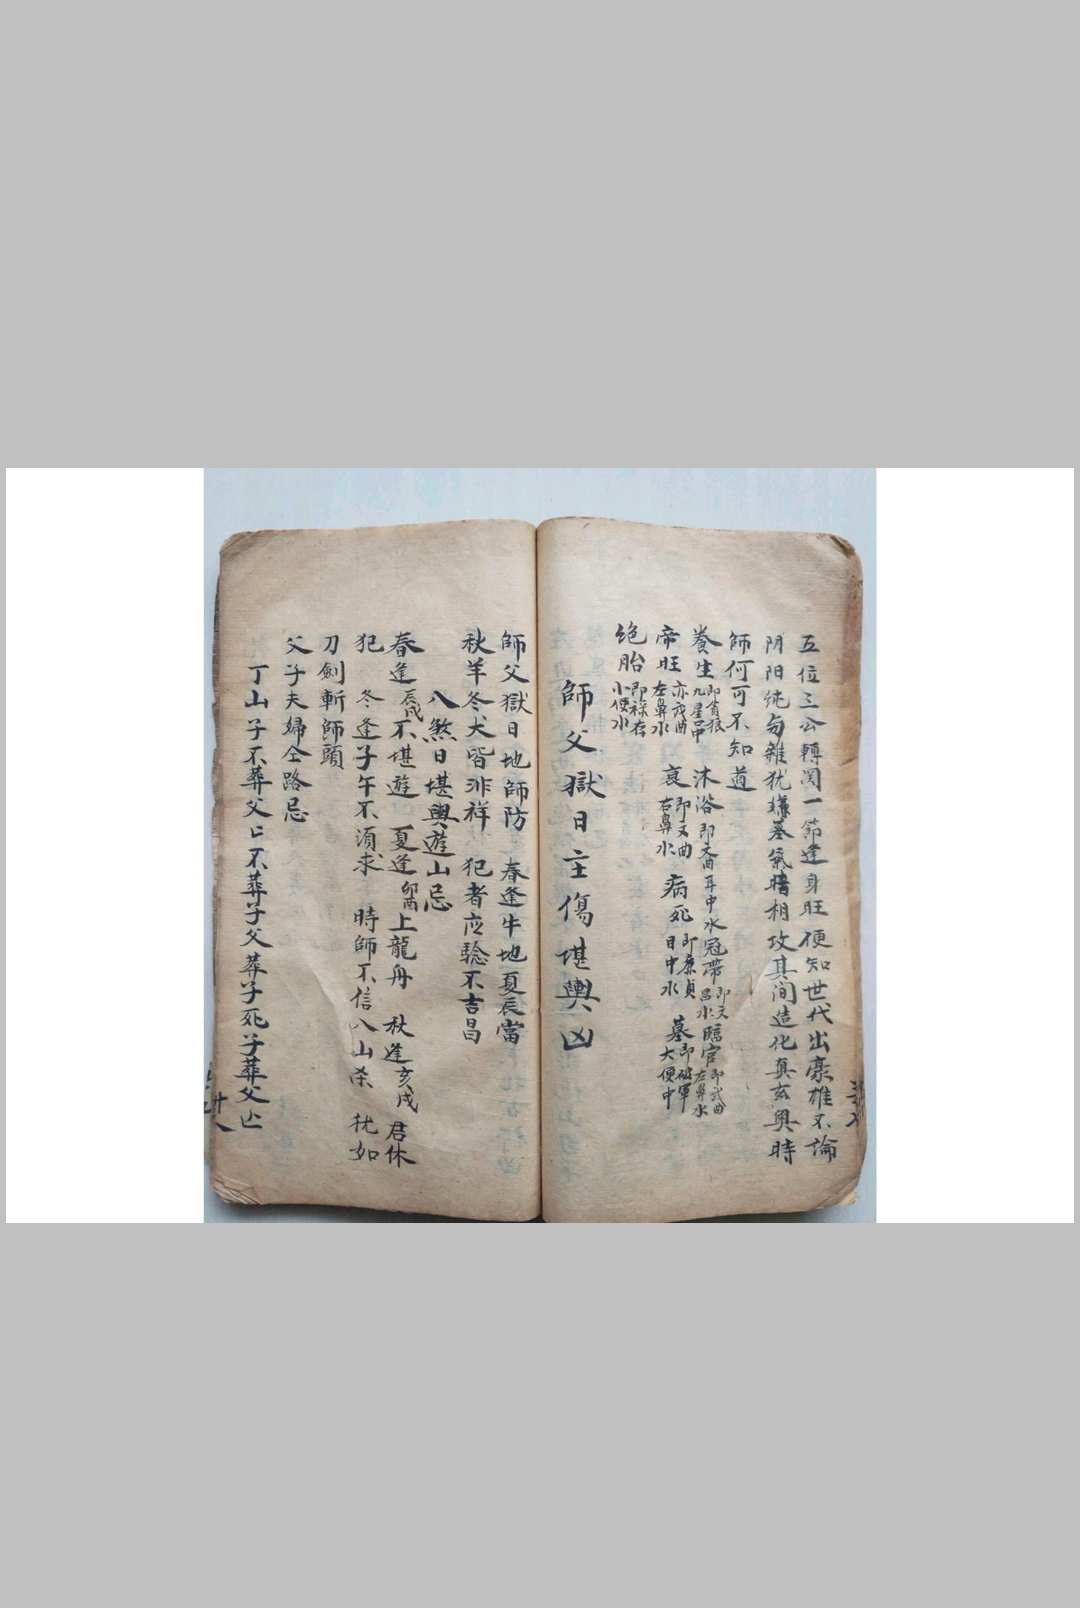 五位三公轉関一節逢身旺便知世代出豪雄不論
阴阳纯勾雜犹嫌墓氣暗相攻其间造化真玄奥時
師何可不知道
養生即貪狼九星口中 沐浴即文曲耳中水 冠帶即文昌水 臨官即武曲左鼻水
帝旺亦武曲左鼻水 衰即巨曲右鼻水 病死即廉貞目中水 墓即破軍大便中
绝胎即祿存小便水
師父獄日主傷堪輿凶
師父獄日地師防 春逢牛地夏辰當
秋羊冬犬皆非祥 犯者应騐不吉昌
八煞日堪輿遊山忌
春逢辰戌不堪遊 夏逢卯酉上龍舟 秋逢亥戌君休
犯 冬逢子午不須求 時師不信八山杀 犹如
刀劍斬師頭
父子夫婦仝路忌
丁山子不葬父匕不葬子父葬子死子葬父亡
廿八